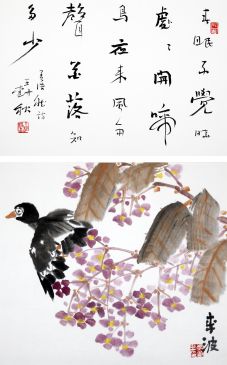 春眠不覺曉
處々聞啼
鳥夜來風雨
聲花落知
多少
孟浩然詩